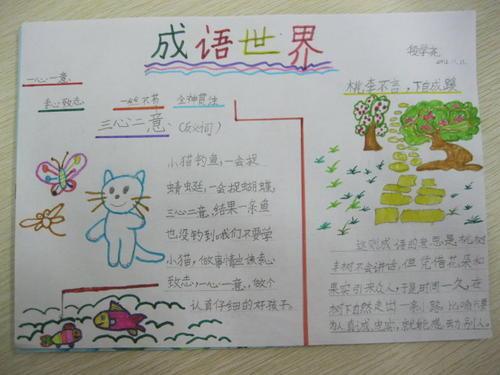 成语世界
一心一意、
专心致志
一丝不苟
全神贯注
三心二意、(反义词)
小猫钓鱼,一会捉
蜻蜓,一会捉蝴蝶,
三心二意,结果一条鱼
也没钓到。我们不要学
小猫,做事情应该专心
致志,一心一意,做个
认真仔细的好孩子。
桃李不言,下自成蹊
这则成语的意思是,桃树
李树不会讲话,但凭借花朵和
果实引来众人,于是时间一久,在
树下自然走出一条小路,比喻只要
为人真诚、忠实,就能感动别人。